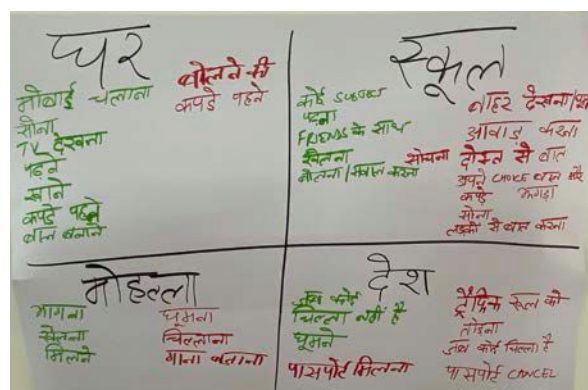 घर
मोबाई चलाना
सोना
TV देखना
पढ़ने
खाने
कपडे पहने
बाल बनाने
बोलने की
कपडे पहने
स्कूल
कोई SUBJECT
पढना
FRIENDS के साथ
खेलना
बोलना/सवाल करना
बाहर देखना
आवाज़ करना
सोचना दोस्त से बात
अपने CHOICE बाल और
कपडे झगड़ा
सोना
लड़की से बात करना
मोहल्ला
भागना
खेलना
मिलने
घूमना
चिल्लाना
गाना बजाना
देश
जब कोई
चिल्ला नहीं है
घूमने
पासपोर्ट मिलना
ट्रैफिक रूल को
तोडना
जब कोई चिल्ला है
पासपोर्ट CANCEL